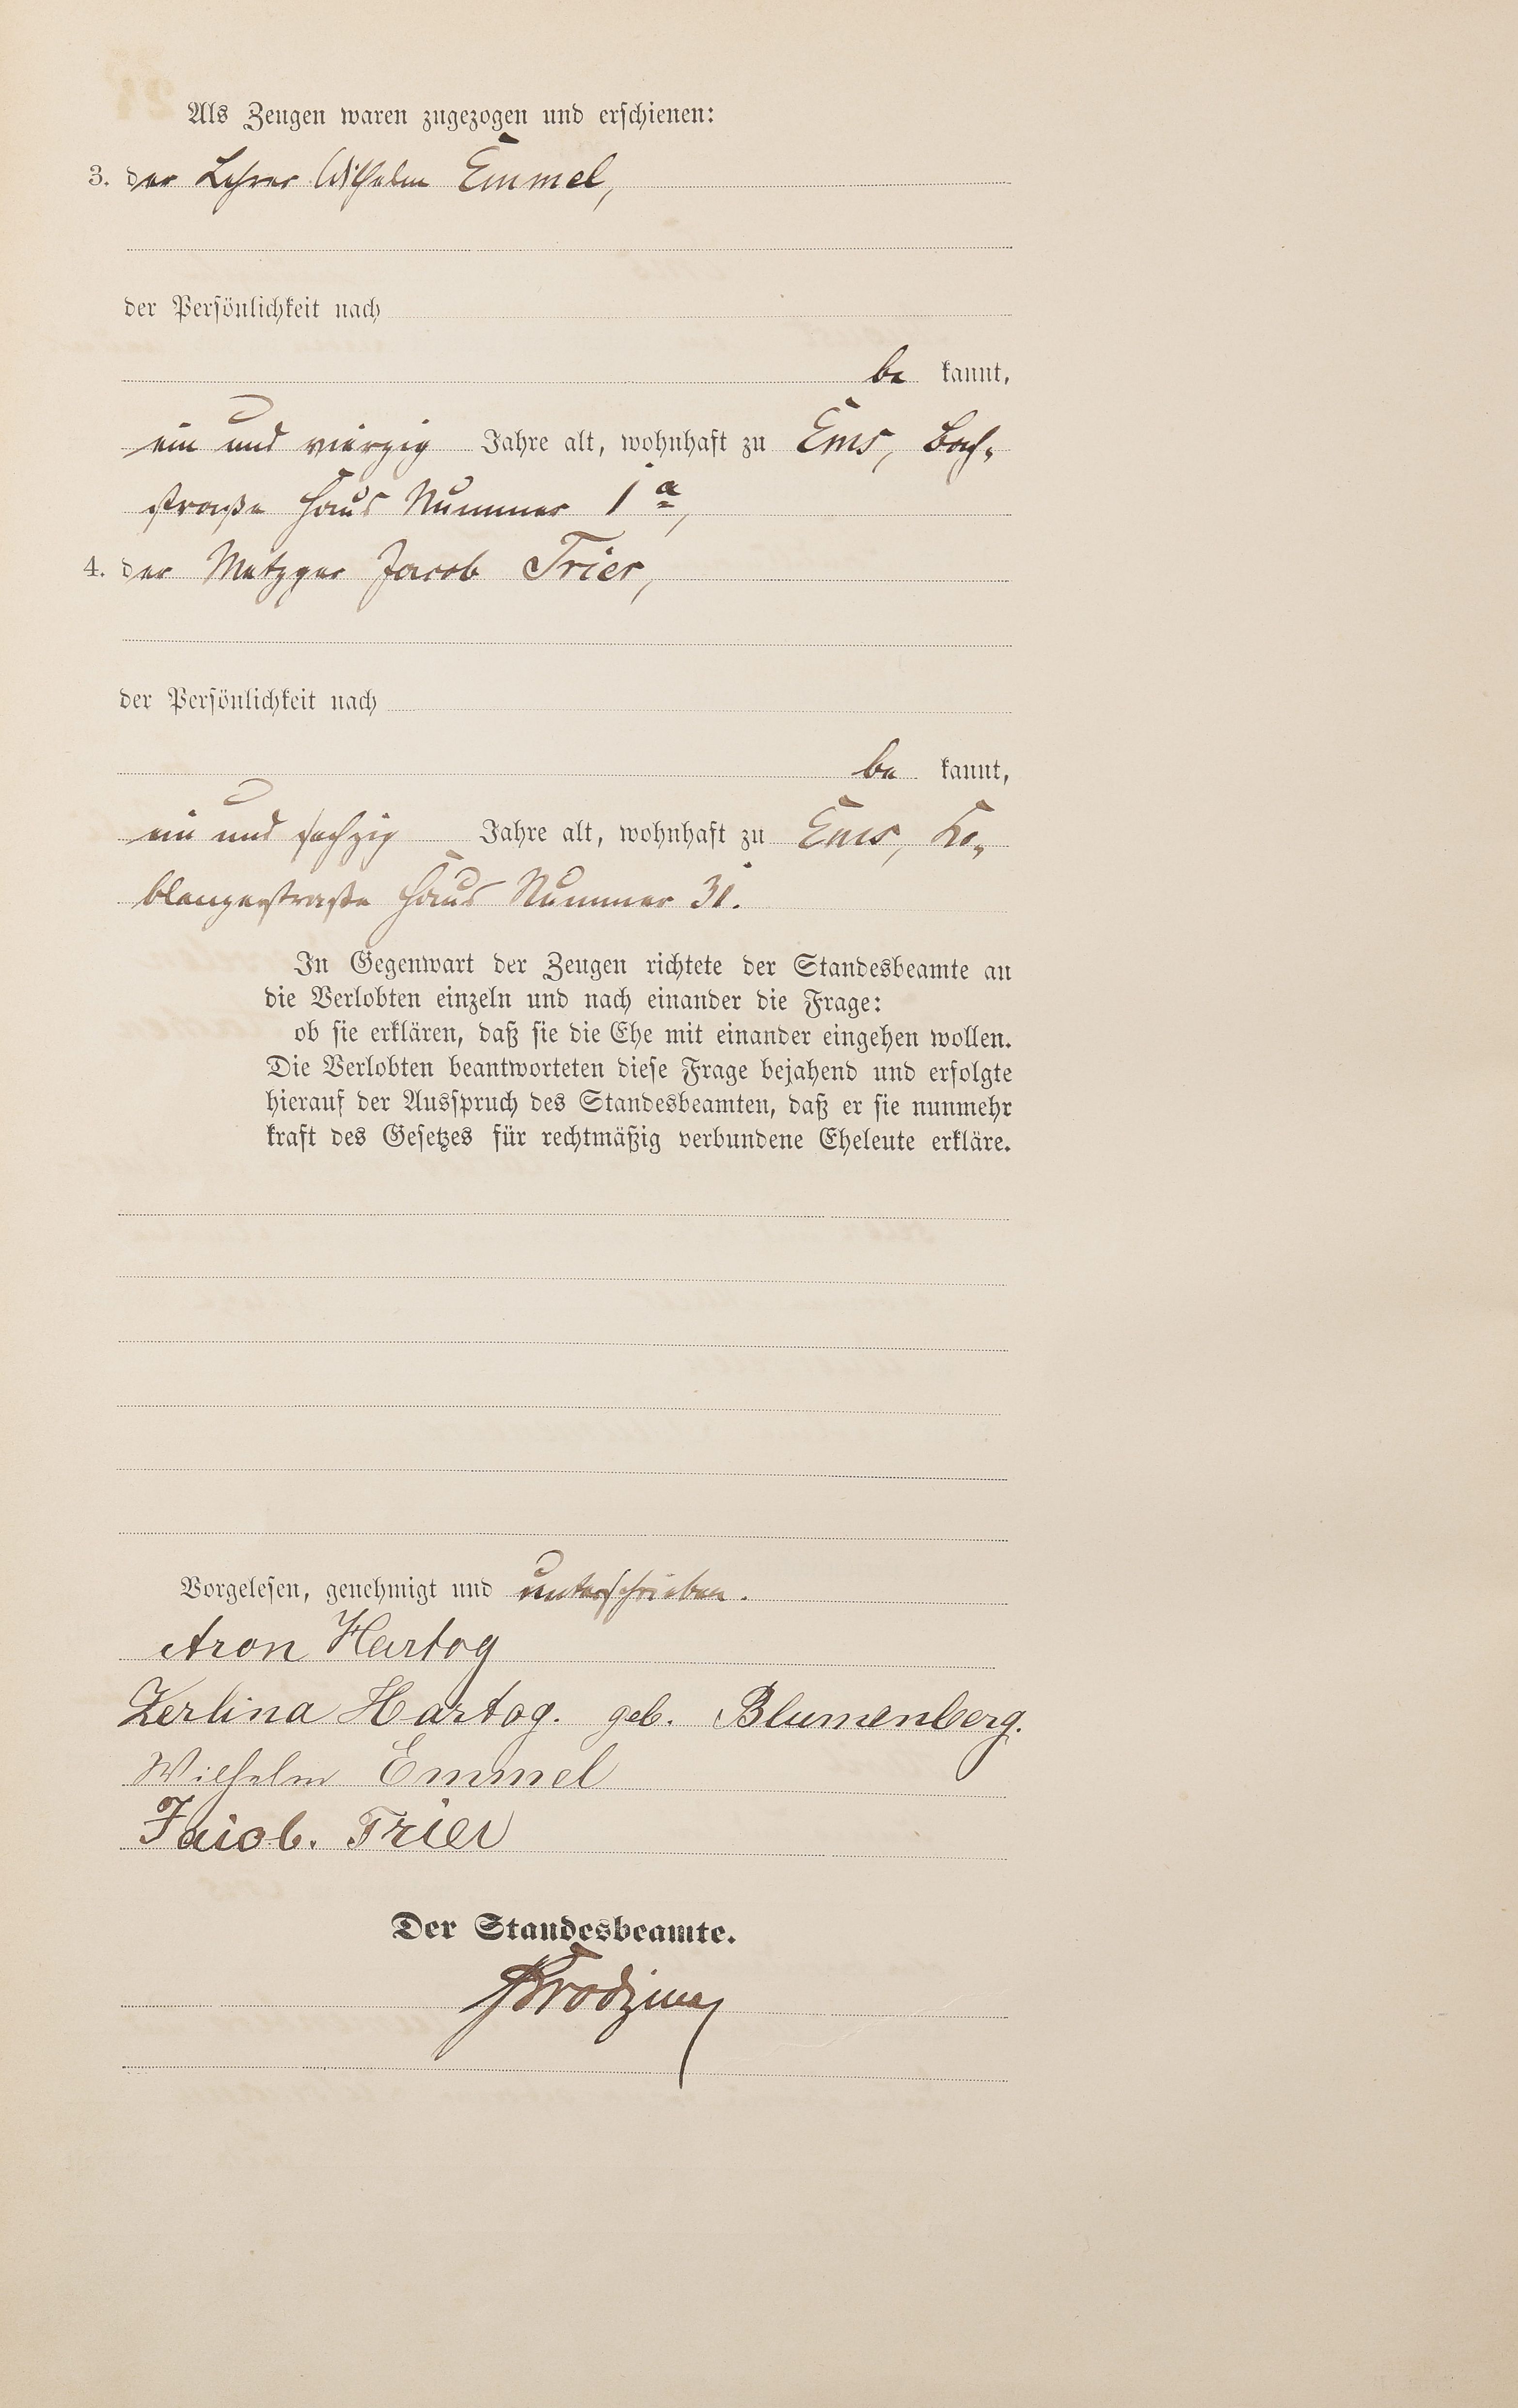 Als Zeugen waren zugezogen und erschienen:
3. der Lehrer Wilhelm Emmel,
der Persönlichkeit nach
be kannt,
ein und vierzig Jahre alt, wohnhaft zu Ems, Bach-
straße Haus Nummer 1 a,
4. der Metzger Jacob Trier,
der Persönlichkeit nach
be kannt,
ein und sechzig Jahre alt, wohnhaft zu Ems, Ko-
blenzerstraße Haus Nummer 31.
In Gegenwart der Zeugen richtete der Standesbeamte an
die Verlobten einzeln und nach einander die Frage:
ob sie erklären, daß sie die Ehe mit einander eingehen wollen.
Die Verlobten beantworteten diese Frage bejahend und erfolgte
hierauf der Ausspruch des Standesbeamten, daß er sie nunmehr
kraft des Gesetzes für rechtmäßig verbundene Eheleute erkläre.
Vorgelesen, genehmigt und unterschrieben.
Aron Hartog
Zerlina Hartog. geb. Blumenberg.
Wilhelm Emmel
Jacob. Trier
Der Standesbeamte.